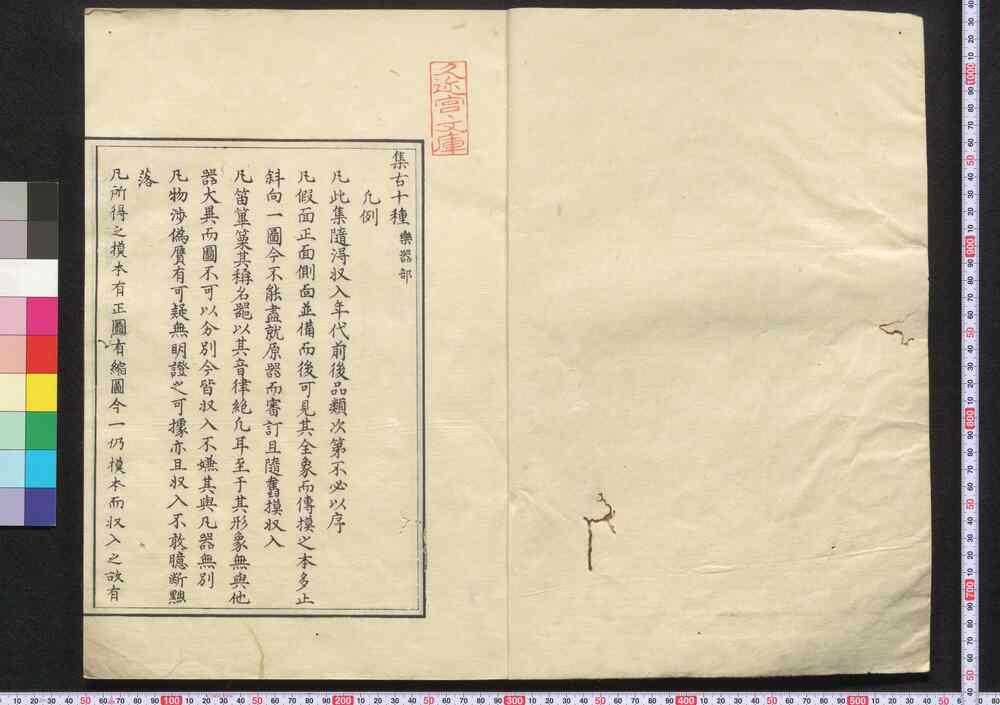 集古十種 樂器部
凡例
凡此集隨淂収入年代前後品類次第不必以序
凡假面正面側面並備而後可見其全象而傳摸之本多止
斜向一圖今不能盡就原器而審訂且隨舊摸収入
凡笛篳篥其稱名器以其音律絶凡耳至于其形象無與他
器大異而圖不可以分別今皆収入不嫌其與凡器無別
凡物渉偽贋有可疑無明證之可據亦且収入不敢臆断黜
落
凡所得之摸本有正圖有縮圖今一仍摸本而収入之故有
久迩宮文庫